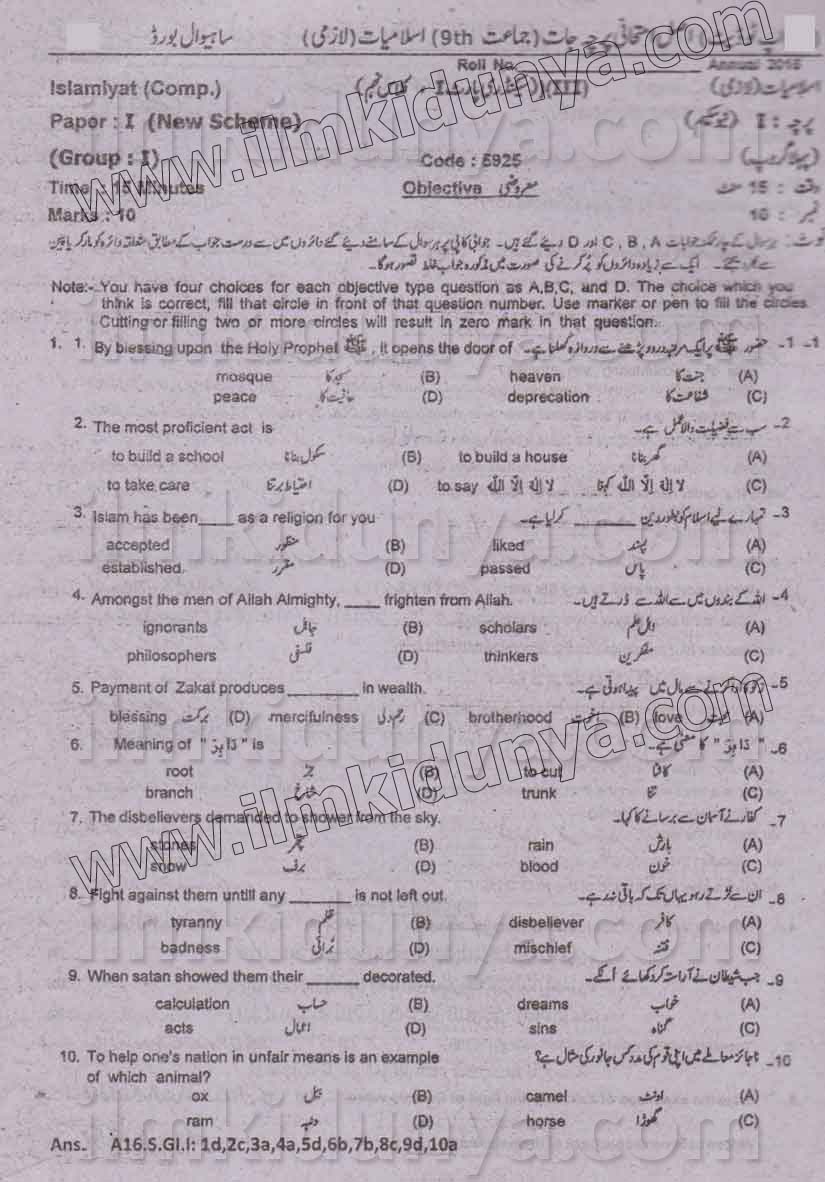 اصل امتحانی پرچہ جات (جماعت 9th) اسلامیات (لازمی) ساہیوال بورڈ
Roll No. Annual 2016
Islamiyat (Comp.) (III) اسلامیات (لازمی)
Paper : I (New Scheme) پرچہ : I
(Group : I) Code : 5925 (پہلا گروپ)
Time : 15 Minutes Objective معروضی وقت : 15 منٹ
Marks : 10 نمبر : 10
نوٹ: ہر سوال کے چار ممکنہ جوابات C , B , A اور D دیئے گئے ہیں۔ جوابی کاپی پر ہر سوال کے سامنے دیئے گئے دائروں میں سے درست جواب کے مطابق متعلقہ دائرہ کو مارکر یا پین
سے بھر دیجئے۔ ایک سے زیادہ دائروں کو پُر کرنے کی صورت میں مذکورہ جواب غلط تصور ہوگا۔
Note:- You have four choices for each objective type question as A,B,C, and D. The choice which you
think is correct, fill that circle in front of that question number. Use marker or pen to fill the circles.
Cutting or filling two or more circles will result in zero mark in that question.
1. 1. By blessing upon the Holy Prophet ﷺ , it opens the door of حضور ﷺ پر ایک مرتبہ درود پڑھنے سے دروازہ کھلتا ہے۔ -1 -1
mosque مسجد کا (B) heaven جنت کا (A)
peace عافیت کا (D) deprecation شفاعت کا (C)
2. The most proficient act is سب سے فضیلت والا عمل ہے۔ -2
to build a school سکول بنانا (B) to build a house گھر بنانا (A)
to take care احتیاط برتنا (D) to say لا الہ الا اللہ لا الہ الا اللہ کہنا (C)
3. Islam has been____ as a religion for you تمہارے لیے اسلام کو بطور دین ______ کر لیا ہے۔ -3
accepted منظور (B) liked پسند (A)
established. مقرر (D) passed پاس (C)
4. Amongst the men of Allah Almighty, ____ frighten from Allah. اللہ کے بندوں میں سے اللہ سے ڈرتے ہیں۔ -4
ignorants جاہل (B) scholars اہل علم (A)
philosophers فلسفی (D) thinkers مفکرین (C)
5. Payment of Zakat produces ________ in wealth. زکوٰۃ ادا کرنے سے مال میں پیدا ہوتی ہے۔ -5
blessing برکت (D) mercifulness رحم دلی (C) brotherhood اخوت (B) love (A)
6. Meaning of " دَابِرَ " is " دَابِرَ " کا معنی ہے۔ -6
root جڑ (B) to cut کاٹنا (A)
branch شاخ (D) trunk تنا (C)
7. The disbelievers demanded to shower from the sky. کفار نے آسمان سے برسانے کا کہا۔ -7
stones پتھر (B) rain بارش (A)
snow برف (D) blood خون (C)
8. Fight against them untill any _______ is not left out. ان سے لڑتے رہو یہاں تک کہ باقی نہ رہے۔ -8
tyranny ظلم (B) disbeliever کافر (A)
badness بُرائی (D) mischief فتنہ (C)
9. When satan showed them their ______ decorated. جب شیطان نے آراستہ کر دکھائے انکے۔ -9
calculation حساب (B) dreams خواب (A)
acts اعمال (D) sins گناہ (C)
10. To help one's nation in unfair means is an example ناجائز معاملے میں اپنی قوم کی مدد کس جانور کی مثال ہے؟ -10
of which animal?
ox بیل (B) camel اونٹ (A)
ram دنبہ (D) horse گھوڑا (C)
Ans. A16.S.GI.I: 1d,2c,3a,4a,5d,6b,7b,8c,9d,10a
www.ilmkidunya.com
www.ilmkidunya.com
ilmkidunya.com
ilmkidunya.com
ilmkidunya.com
ilmkidunya.com
ilmkidunya.com